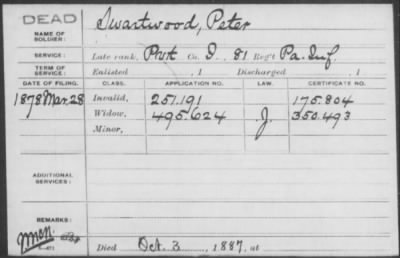 DEAD
NAME OF SOLDIER: Swartwood, Peter
SERVICE: Late rank, Pvt Co. D, 81 Reg't Pa. Inf.
TERM OF SERVICE: Enlisted , 1 Discharged , 1
DATE OF FILING. CLASS. APPLICATION NO. LAW. CERTIFICATE NO.
1878 Mar. 28 Invalid, 251.191 175.804
Widow, 495.624 J. 350.493
Minor,
ADDITIONAL SERVICES:
REMARKS:
Died Oct. 3, 1887, at